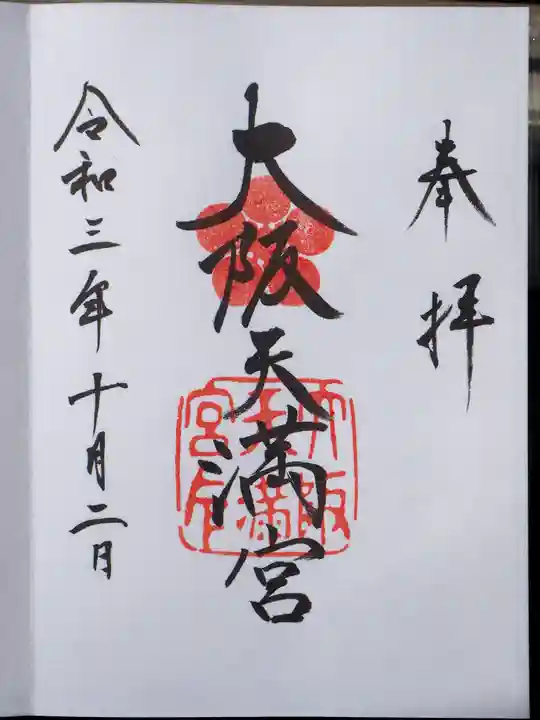 奉拝
大阪天満宮
大阪
天満
宮印
令和三年十月二日